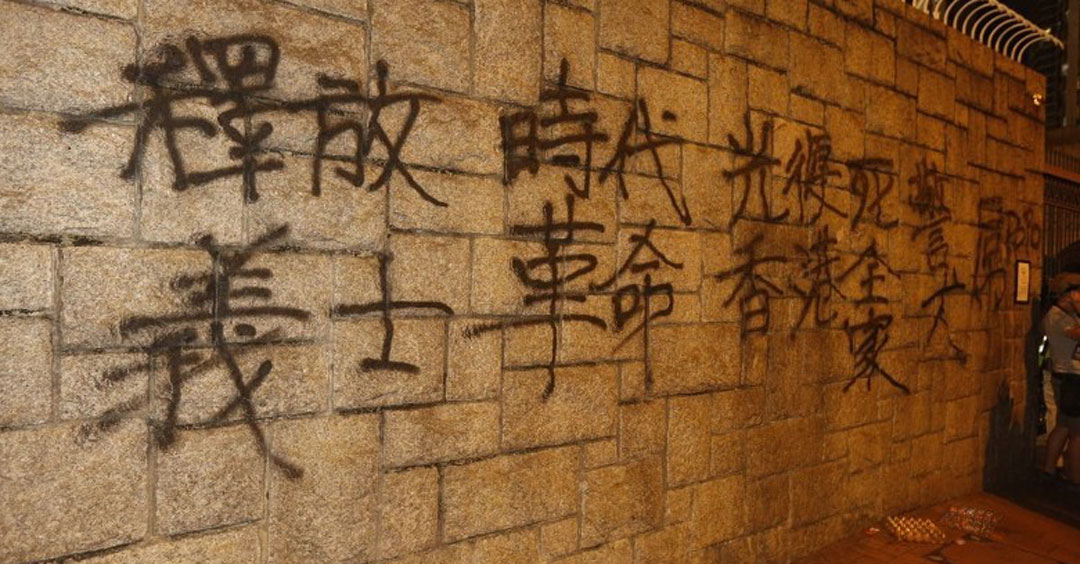 釋放
義士
時代
革命
光復
香港
死全家
警